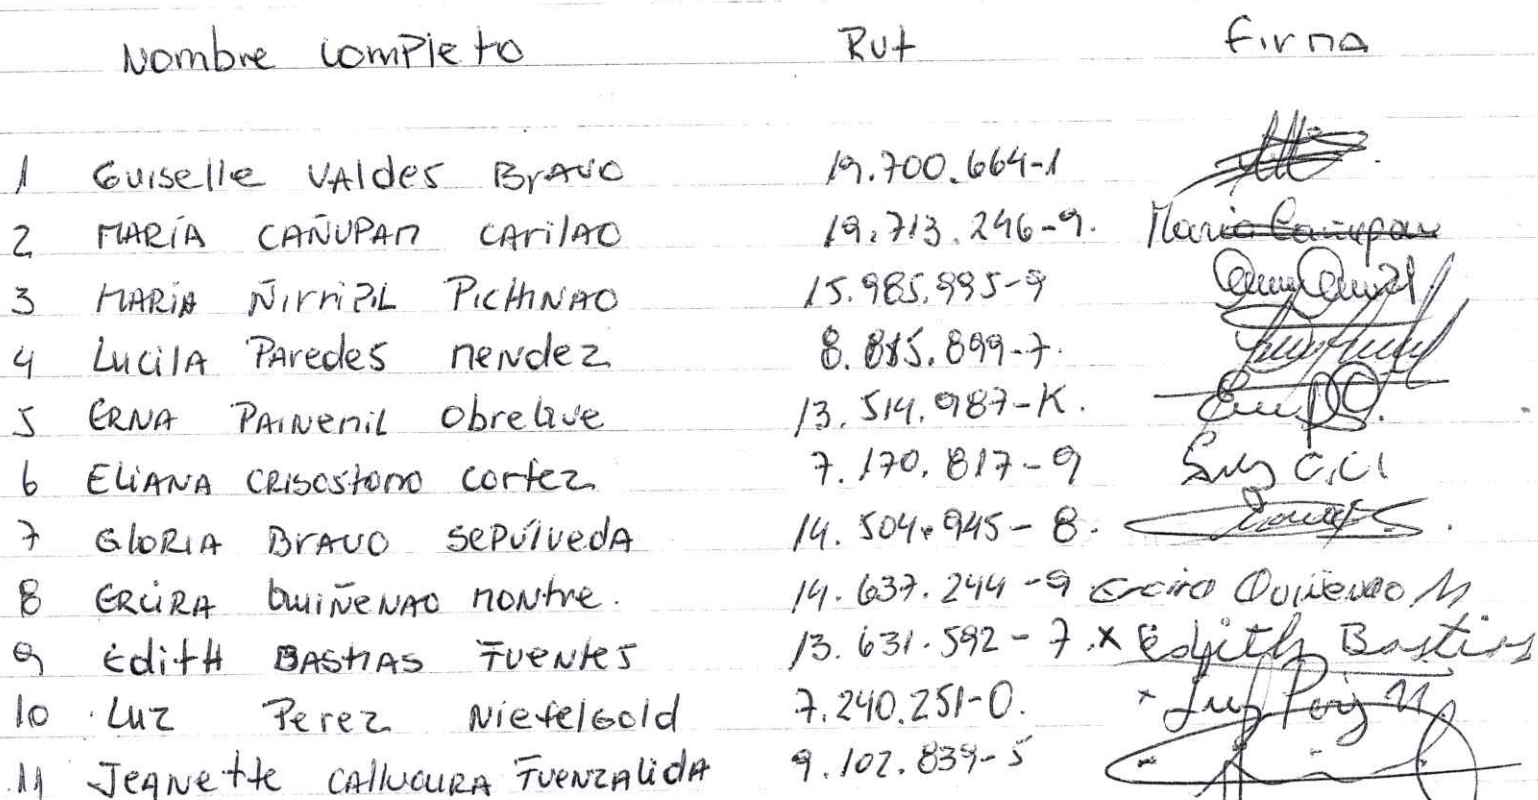 Nombre completo Rut firma
1 Guiselle Valdes Bravo 19.700.664-1
2 María Cañupan Carilao 19.713.246-9. Maria Cañupan
3 María Ñirripil Pichinao 15.985.995-9
4 Lucila Paredes Mendez 8.885.899-7.
5 Erna Painemil Obreque 13.514.987-K.
6 Eliana Crisostomo Cortez 7.170.817-9
7 Gloria Bravo Sepúlveda 14.504.945-8.
8 Quiñenao 14.637.244-9
9 Edith Bastias Fuentes 13.631.592-7. x Edith Bastias
10 Luz Perez Niefelgold 7.240.251-0. x Luz
11 Jeanette Fuenzalida 9.102.839-5